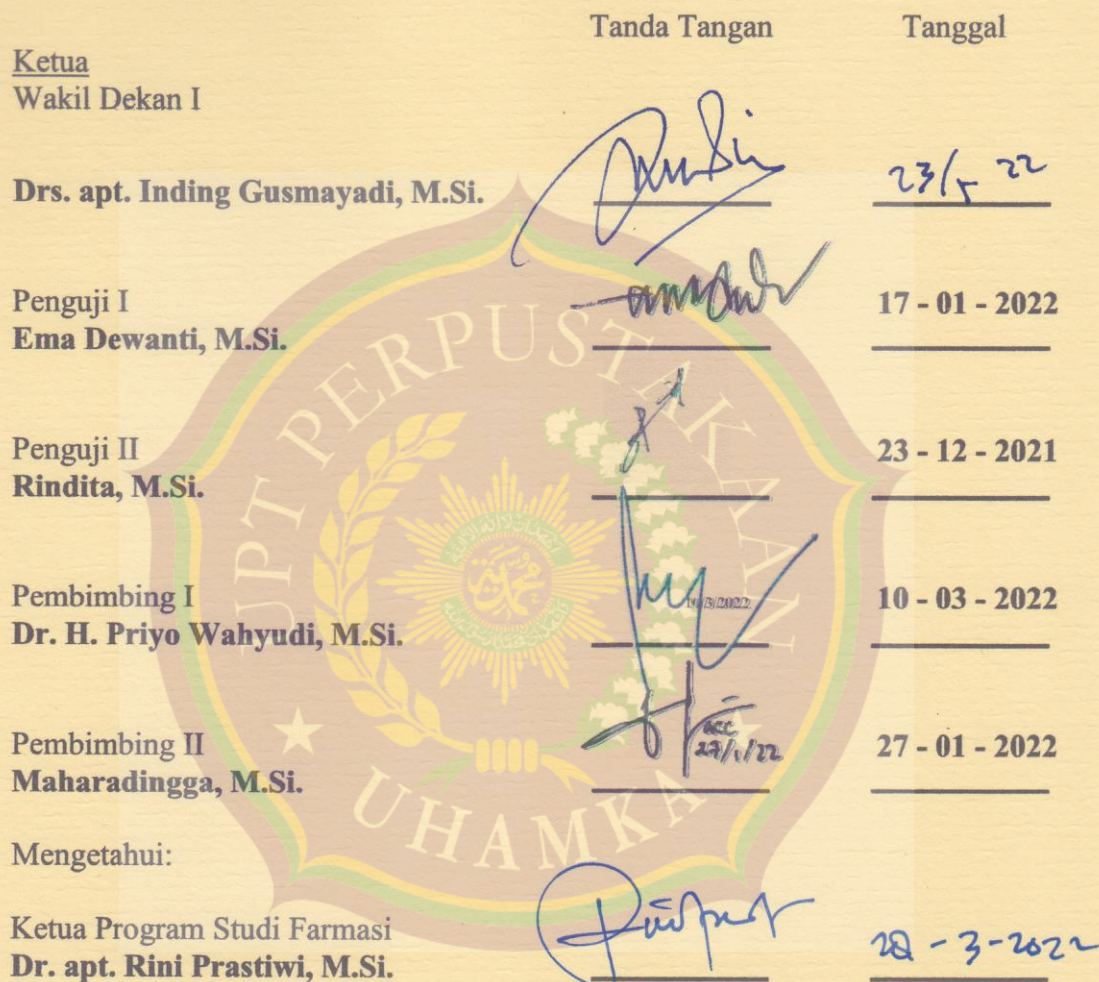 Tanda Tangan Tanggal
Ketua
Wakil Dekan I
Drs. apt. Inding Gusmayadi, M.Si. 23/5 22
Penguji I
Ema Dewanti, M.Si. 17 - 01 - 2022
Penguji II
Rindita, M.Si. 23 - 12 - 2021
Pembimbing I
Dr. H. Priyo Wahyudi, M.Si. 10/3/2022 10 - 03 - 2022
Pembimbing II acc
27/1/22 27 - 01 - 2022
Maharadingga, M.Si.
Mengetahui:
Ketua Program Studi Farmasi
Dr. apt. Rini Prastiwi, M.Si. - 3 - 2022
UPT PERPUSTAKAAN
UHAMKA